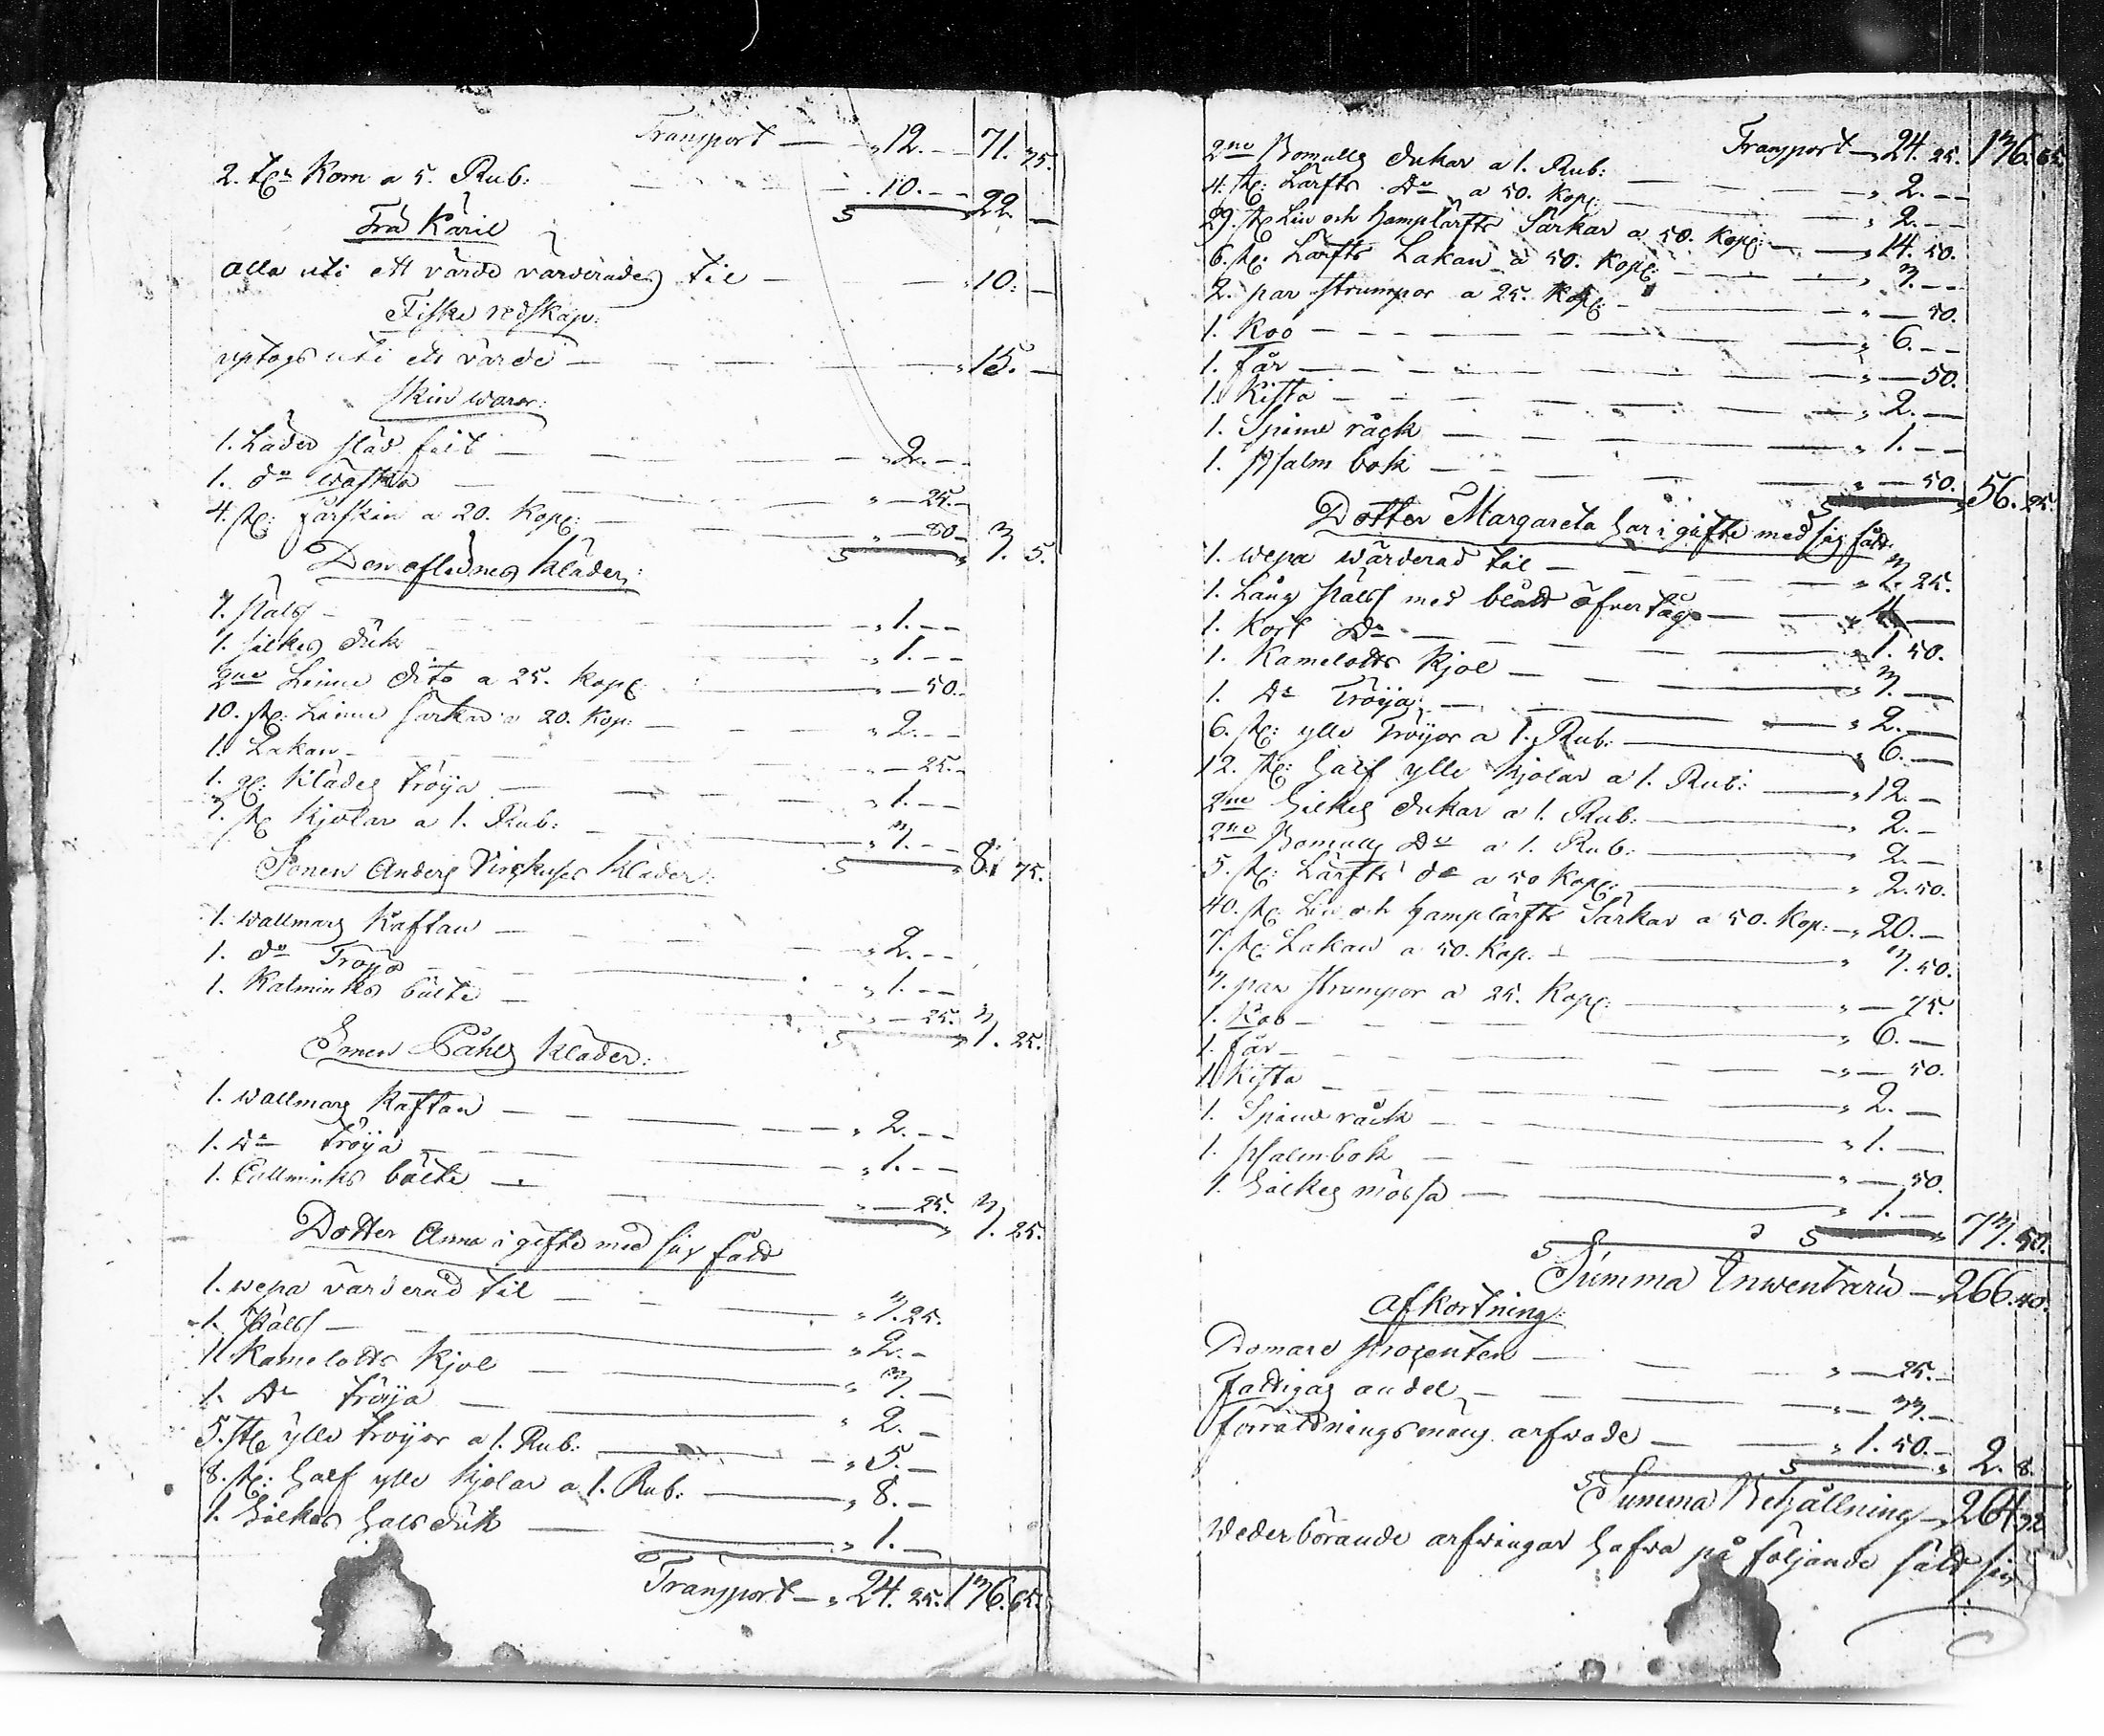 Transport — „ 12. — 71. 35.
2. t:r Korn a 5. Rub: — 10. — 22. —
Trä Käril
alla uti ett värde värderades til — „ 10: —
Fiske redskap:
uptogs uti ett värde — „ 15. —
Skin waror:
1. Läder släd fäll — „ 2. —
1. d:o wäska — „ — 25. —
4. st: fårskin a 20. Kop: — „ — 80 — 3. 5.
Den aflidnes kläder:
1. Pälts — „ 1. —
1. silkes duk — „ 1. —
2ne Linne dito a 25. kop: — „ — 50.
10. st: Linne särkar a 20. Kop: — „ 2. —
1. Lakan — „ — 25. —
1. st: Klädes tröija — „ 1. —
3. st: Kjolar a 1. Rub: — „ 3. — 8. 75.
Sonen Anders kläder:
1. wallmars Kaftan — „ 2. —
1. d:o Tröija — „ 1. —
1. Kalminks bälte — „ — 25. 3. 25.
Sonen Påhls Kläder:
1. wallmars Kaftan — „ 2. —
1. d:o tröija — „ 1. —
1. Callminks bälte — „ — 25. 3. 25.
Dotter Anna i gifte med sig fådt
1. wepa värderad til — „ 3. 25.
1. Pälts — „ 2. —
1. Kamelotts Kjol — „ 3. —
1. d:o tröija — „ 2. —
5. st: ylle tröijor a 1. Rub: — „ 5. —
8. st: half ylle kjolar a 1. Rub: — „ 8. —
1. Silkes halsduk — „ 1. —
Transport — „ 24. 25. 136. 65.
Transport — „ 24. 25. 136. 65.
2ne Bomulls dukar a 1. Rub: — „ 2. —
4. st: Lärfts d:o a 50. Kop: — „ 2. —
29. st: Lin och hamplärfts Särkar a 50. Kop: — „ 14. 50.
6. st: Lärfts Lakan a 50. Kop: — „ 3. —
2. par strumpor a 25. Kop: — „ — 50.
1. Koo — „ 6. —
1. får — „ — 50.
1. Kista — „ 2. —
1. Spinn råck — „ 1. —
1. psalm bok — „ — 50. 56. 25.
Dotter Margareta har i gifte med sig fådt
1. wepa wärderad til — „ 3. 25.
1. Lång Pälts med blått öfvertåg — „ 4. —
1. Kort d:o — „ 1. 50.
1. Kamelotts Kjol — „ 3. —
1. d:o Tröija — „ 2. —
6. st: ylle Tröijor a 1. Rub: — „ 6. —
12. st: half ylle kjolar a 1. Rub: — „ 12. —
2ne Silkes dukar a 1. Rub: — „ 2. —
2ne Bomulls d:o a 1. Rub: — „ 2. —
5. st: Lärfts d:o a 50 Kop: — „ 2. 50.
40. st: Lin och hamplärfts Särkar a 50. Kop: — „ 20. —
7. st: Lakan a 50. Kop: — „ 3. 50.
3. par strumpor a 25. Kop: — „ — 75.
1. Koo — „ 6. —
1. får — „ — 50.
1. Kista — „ 2. —
1. Spinn råck — „ 1. —
1. psalmbok — „ — 50.
1. Silkes mössa — „ 1. — 73. 50.
Summa Inwentarii — 266. 40.
Afkortning:
Domare prosenten — „ — 25. —
Fattigas andel — „ — 33. —
förrättningsmans arfwode — „ 1. 50. — 2. 8.
Summa Behållning — 264. 32
wederbörande arfwingar hafwa på följande sätt sig